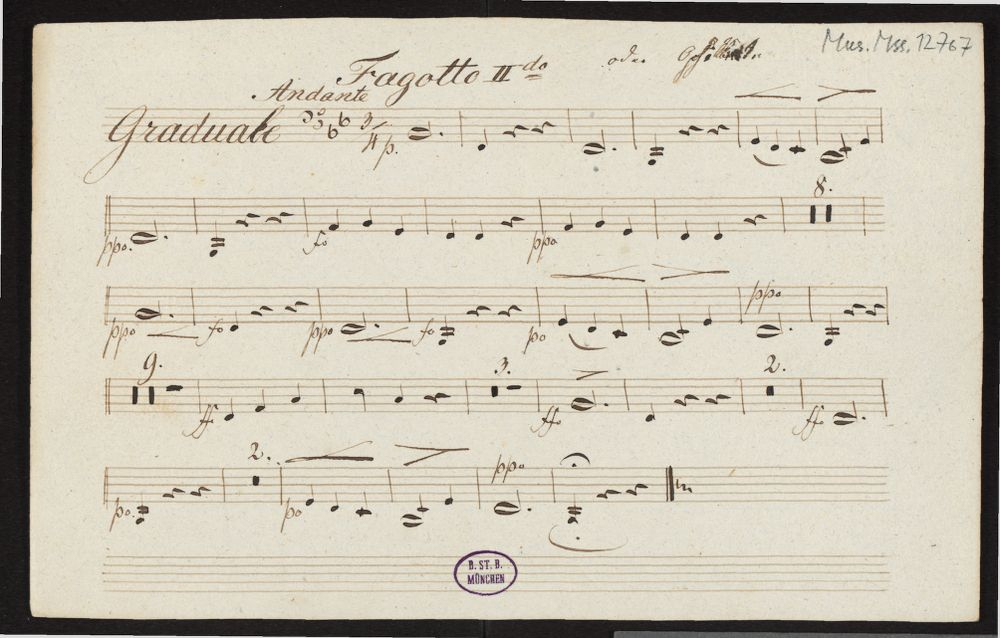 Mus. Mss. 12767
Fagotto II do oder
Andante
Graduale 3/4 p.
8.
ppo. fo ppo
ppo
ppo fo ppo fo po
9. 3. 2.
ffo ffo ffo
2. ppo
po. po
B. ST. B.
MÜNCHEN